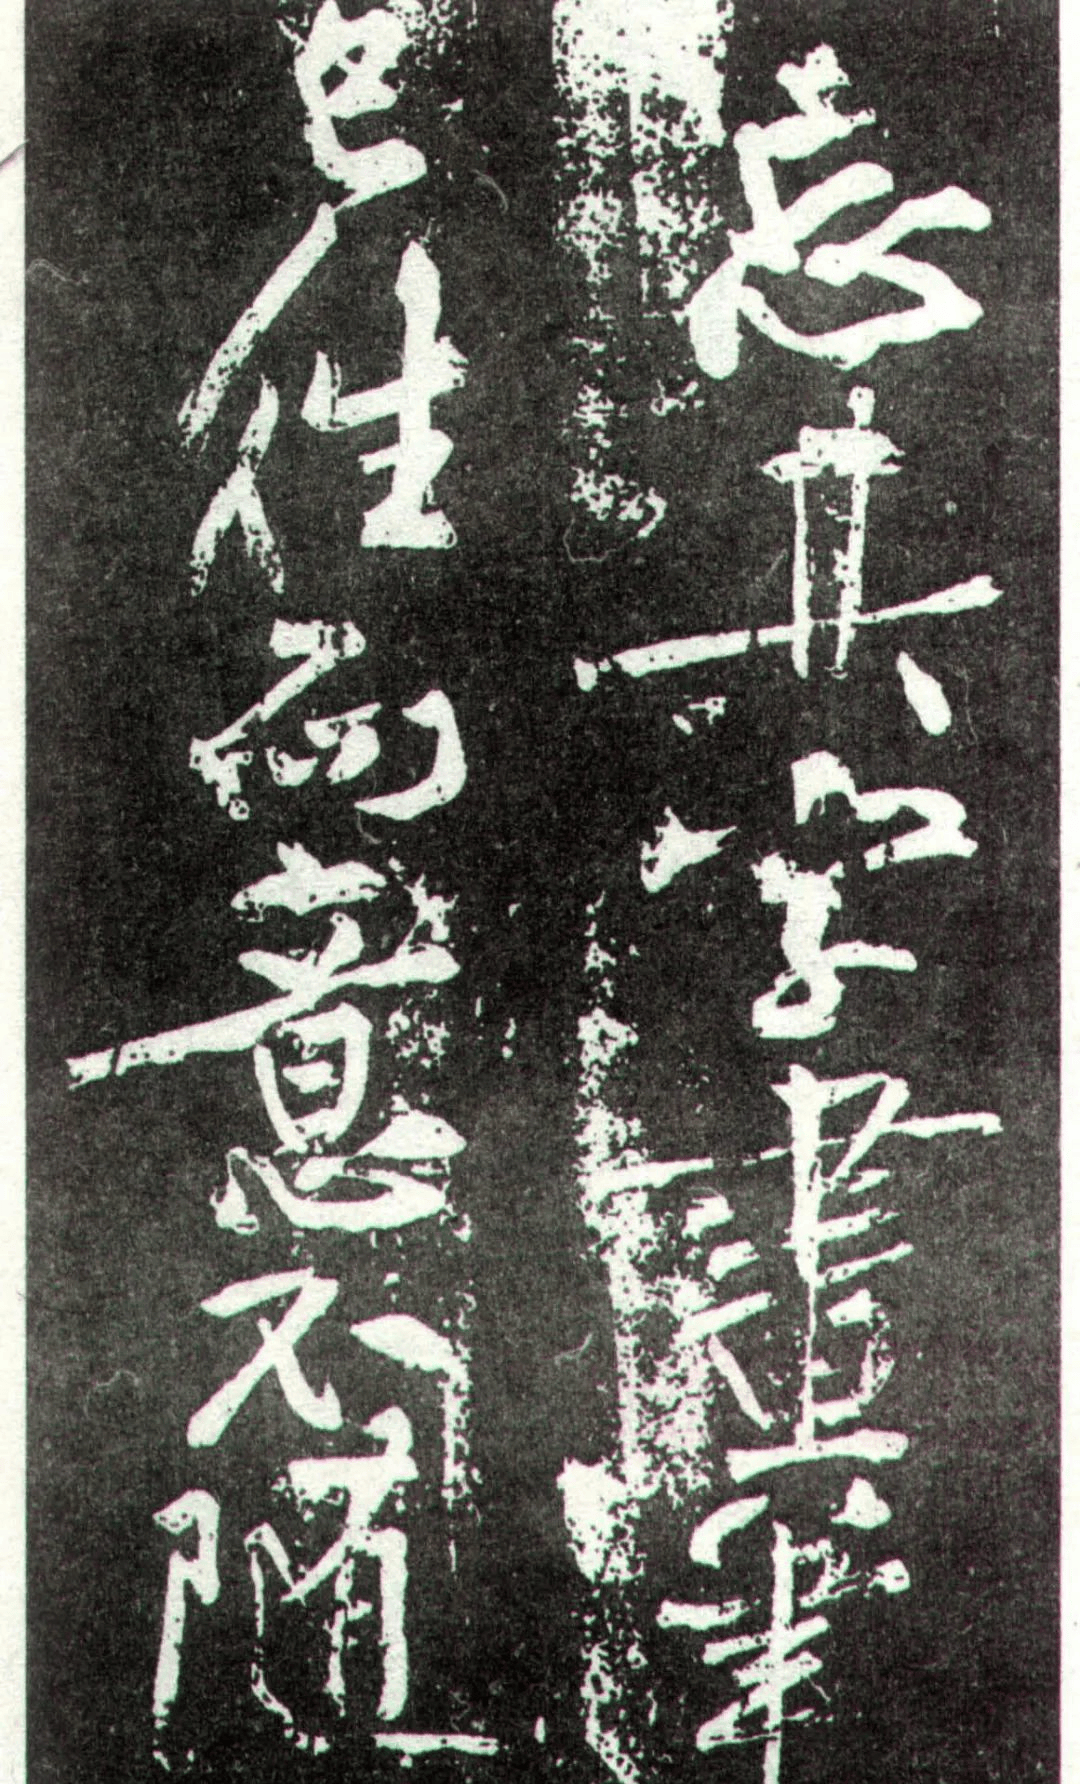 忘其字筆
已往而意不隨